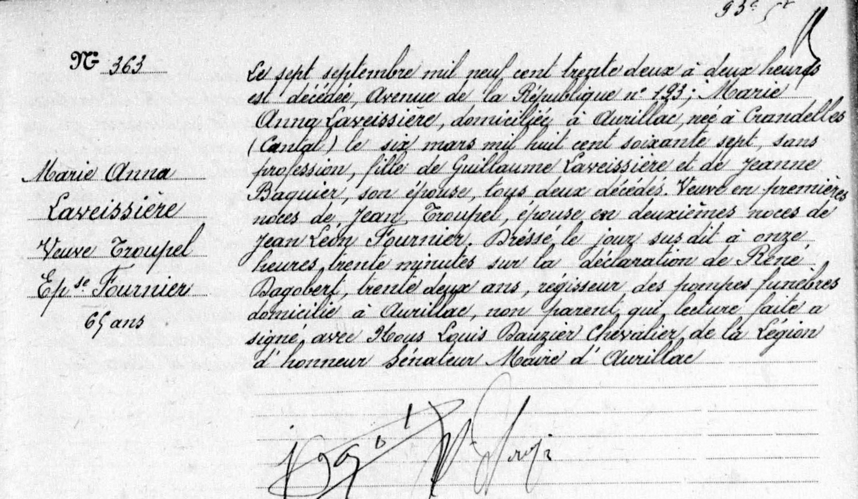 Nº 363
Marie Anna
Laveissière
Veuve Troupel
Ep.se Fournier
65 ans
Le sept septembre mil neuf cent trente deux à deux heures
est décédée, Avenue de la République nº 123; Marie
Anna Laveissière, domiciliée à Aurillac, née à Crandelles
(Cantal) le six mars mil huit cent soixante sept, sans
profession, fille de Guillaume Laveissière et de Jeanne
Baguier, son épouse, tous deux décédés. Veuve en premières
noces de Jean Troupel, épouse en deuxièmes noces de
Jean Léon Fournier. Dressé le jour susdit à onze
heures trente minutes sur la déclaration de René
Dagobert, trente deux ans, régisseur des pompes funèbres
domicilié à Aurillac, non parent qui lecture faite a
signé, avec Nous Louis Dauzier Chevalier de la Légion
d'honneur Sénateur Maire d'Aurillac